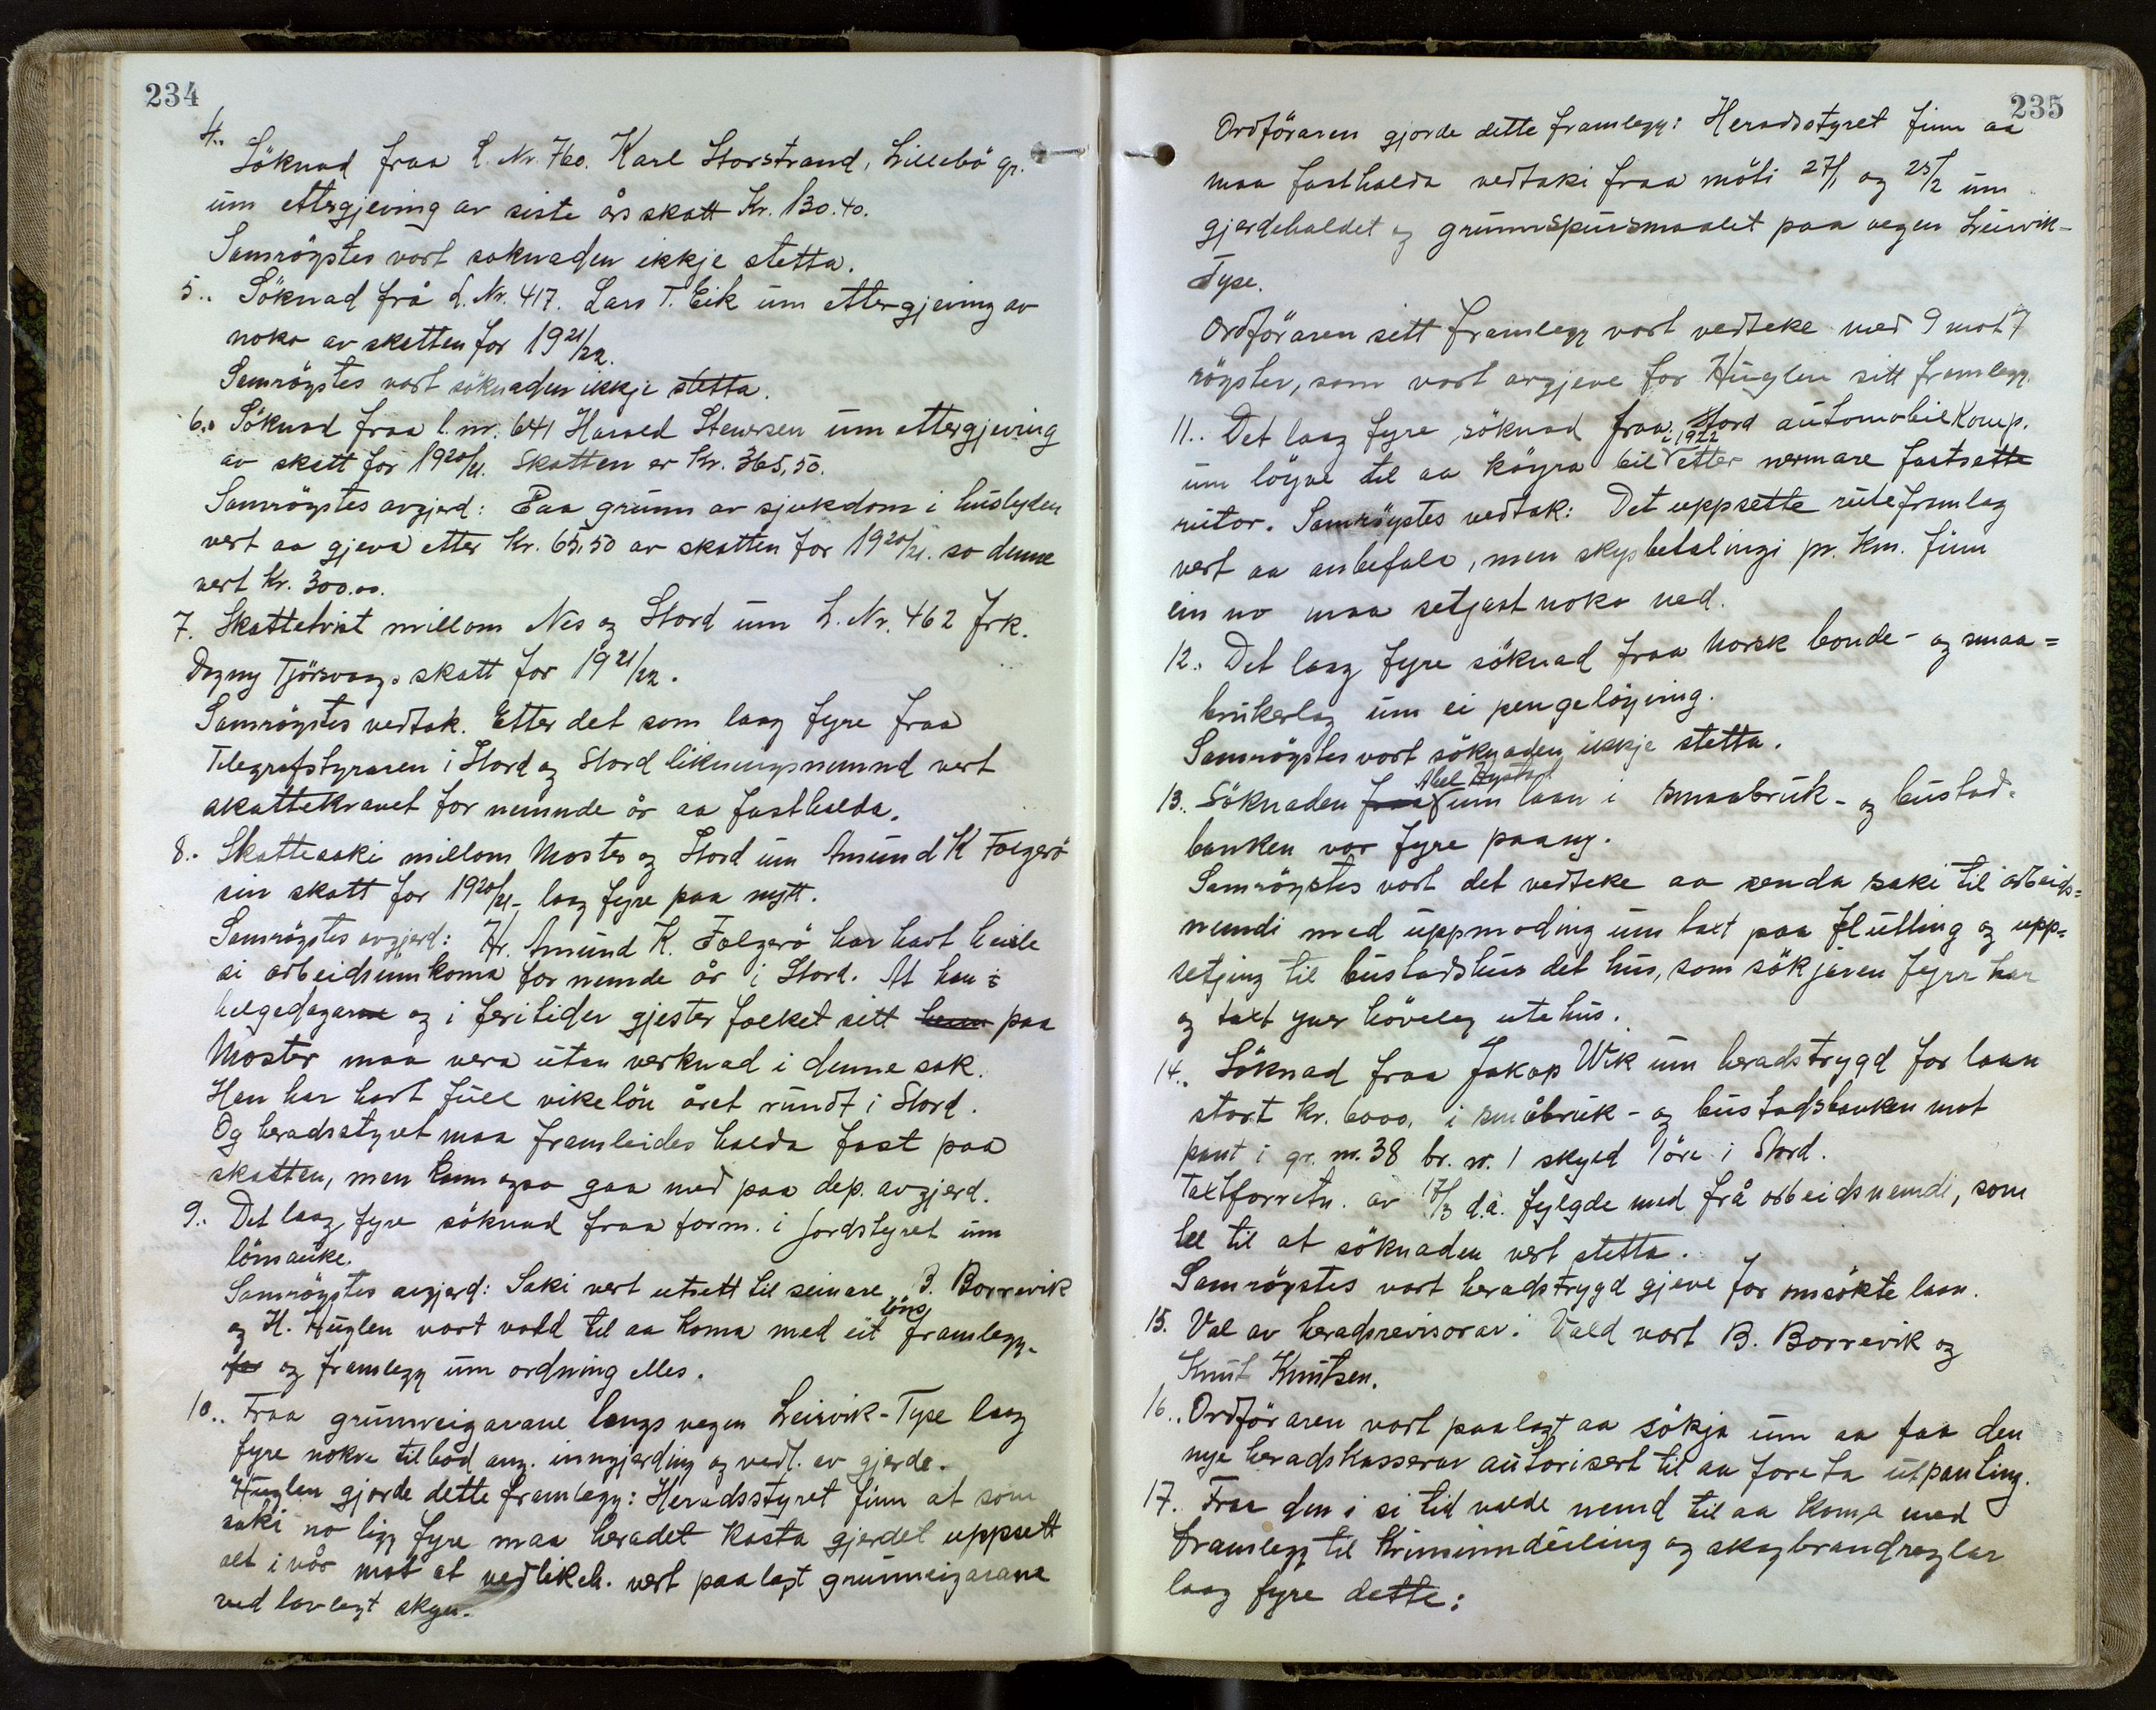 234
4.. Söknad fraa L. Nr. 760. Karl Storstrand, Lillebö gr.
um ettergjeving av siste års skatt Kr. 130.40.
Samröystes vort soknaden ikkje stetta.
5.. Söknad frå L. Nr. 417. Lars T. Eik um ettergjeving av
noko av skatten for 1921/22.
Samröystes vort söknaden ikkje stetta.
6.. Söknad fraa l. nr. 641 Harald Stenersen um ettergjeving
av skatt for 1920/21. Skatten er Kr. 365,50.
Samröystes avgjerd: Paa grunn av sjukdom i huslyden
vert aa gjeva etter Kr. 65,50 av skatten for 1920/21. so denne
vert Kr. 300.00.
7. Skattetvist millom Nes og Stord um L. Nr. 462 Frk.
Dagny Tjörsvaags skatt for 1921/22.
Samröystes vedtak. Etter det som laag fyre fraa
Telegrafstyraren i Stord og Stord likningsnemnd vert
skattekravet for nemnde år aa fasthalda.
8.. Skattesaki millom Moster og Stord um Amund K Folgerö
sin skatt for 1920/21 laag fyre paa nytt.
Samröystes avgjerd: Hr. Amund K. Folgerö har havt heile
si arbeidsumkoma for nemde år i Stord. At han i
helgedagarne og i feritider gjester folket sitt heim paa
Moster maa vera utan verknad i denne sak.
Han har havt full vikelön året rundt i Stord.
Og heradsstyret maa framleides halda fast paa
skatten, men kann ogso gaa med paa dep. avgjerd.
9.. Det laag fyre söknad fraa form. i Jordstyret um
lönsauke.
Samröystes avgjerd: Saki vert utsett til seinare. B. Borrevik
og H. Huglen vart vald til aa koma med eit löns framlegg
for og framlegg um ordning elles.
10.. Fraa grunneigarane langs vegen Leirvik-Tyse laag
fyre nokre tilbod ang. inngjerding og vedl. av gjerde.
Huglen gjorde dette framlegg: Heradsstyret finn at som
saki no ligg fyre maa heradet kosta gjerdet uppsett
alt i vår mot at vedlikeh. vert paalagt grunneigarane
ved lovlegt skyn.
235
Ordföraren gjorde dette framlegg: Heradsstyret finn aa
maa fasthalda vedtaki fraa möti 27/1 og 25/2 um
gjerdehaldet og grunnspursmaalet paa vegen Leirvik-
Tyse.
Ordföraren sitt framlegg vart vedteke med 9 mot 7
röyster, som vart avgjeve for Huglen sitt framlegg.
11.. Det laag fyre söknad fraa Stord automobilkomp.
um löyve til aa köyra bil i 1922 etter nermare fastsette
rutor. Samröystes vedtak: Det uppsette ruteframlag
vert aa anbefale, men skysbetalingi pr. Km. finn
ein no maa setjast noko ned.
12. Det laag fyre söknad fraa Norsk bonde- og smaa=
brukerlag um ei pengelöyving.
Samröystes vort söknaden ikkje stetta.
13.. Söknaden fraa Abel Bystad um laan i smaabruk- og bustad-
banken var fyre paany.
Samröystes vort det vedteke aa senda saki til arbeids=
nemndi med uppmoding um taxt paa flutting og upp=
setjing til bustadshus det hus, som sökjaren fyrr har
og taxt yver höveleg utehus.
14.. Söknad fraa Jakop Wik um heradstrygd for laan
stort kr. 6000. i småbruk- og bustadsbanken mot
pant i gr. nr. 38 br. nr. 1 skyld 1 öre i Stord.
Taxtforretn. av 17/3 d.å. fylgde med frå arbeidsnemdi, som
lel til at söknaden vert stetta.
Samröystes vart heradstrygd gjeve for omsökte laan.
15. Val av heradsrevisorar. Vald vort B. Borrevik og
Knut Knutsen.
16.. Ordföraren vort paalagt aa sökja um aa faa den
nye heradskasserar autorisert til aa foreta utpanting.
17. Fraa den i si tid valde nemd til aa koma med
framlegg til Kriminndeiling og skogbrandreglar
laag fyre dette: